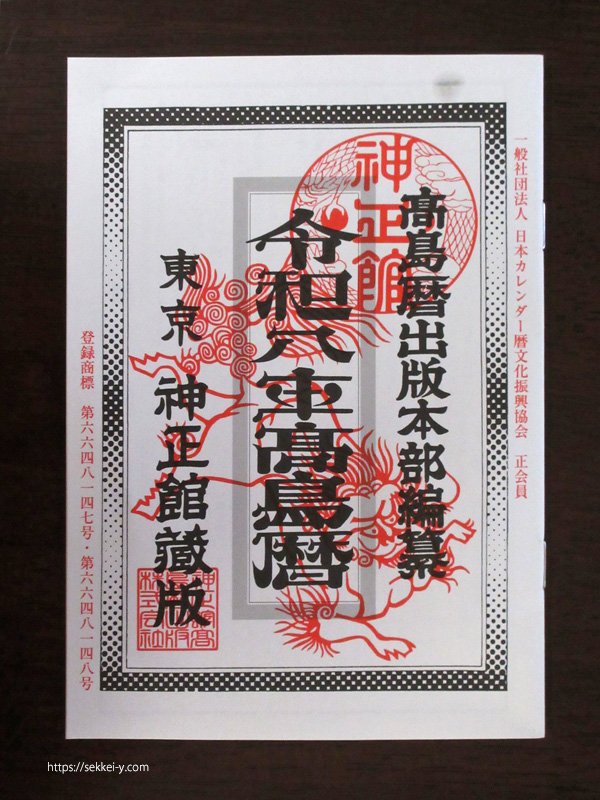 一般社団法人 日本カレンダー暦文化振興協会 正会員
神正館
高島暦出版本部編纂
令和八年高島暦
東京 神正館藏版
登録商標 第六六四八一四七号・第六六四八一四八号
https://sekkei-y.com